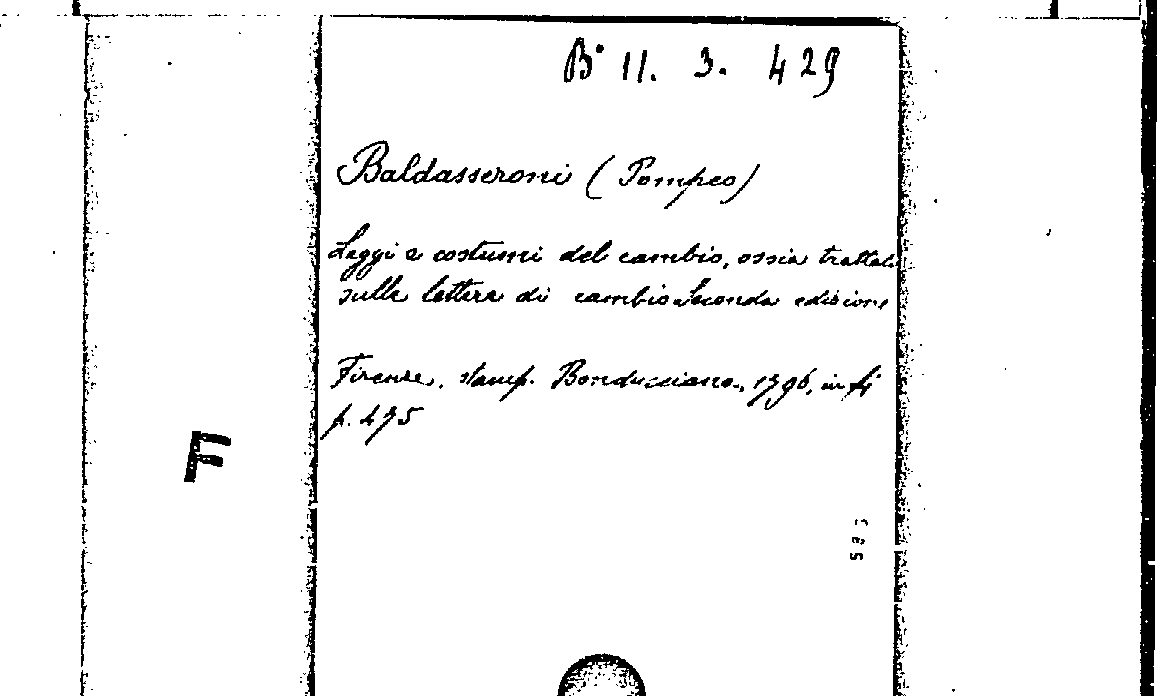 B° 11. 3. 429
Baldasseroni (Pompeo)
Leggi e costumi del cambio, ossia trattato
sulle lettere di cambio Seconda edizione
Firenze, stamp. Bonducciana, 1796, in f°
p. 475
F